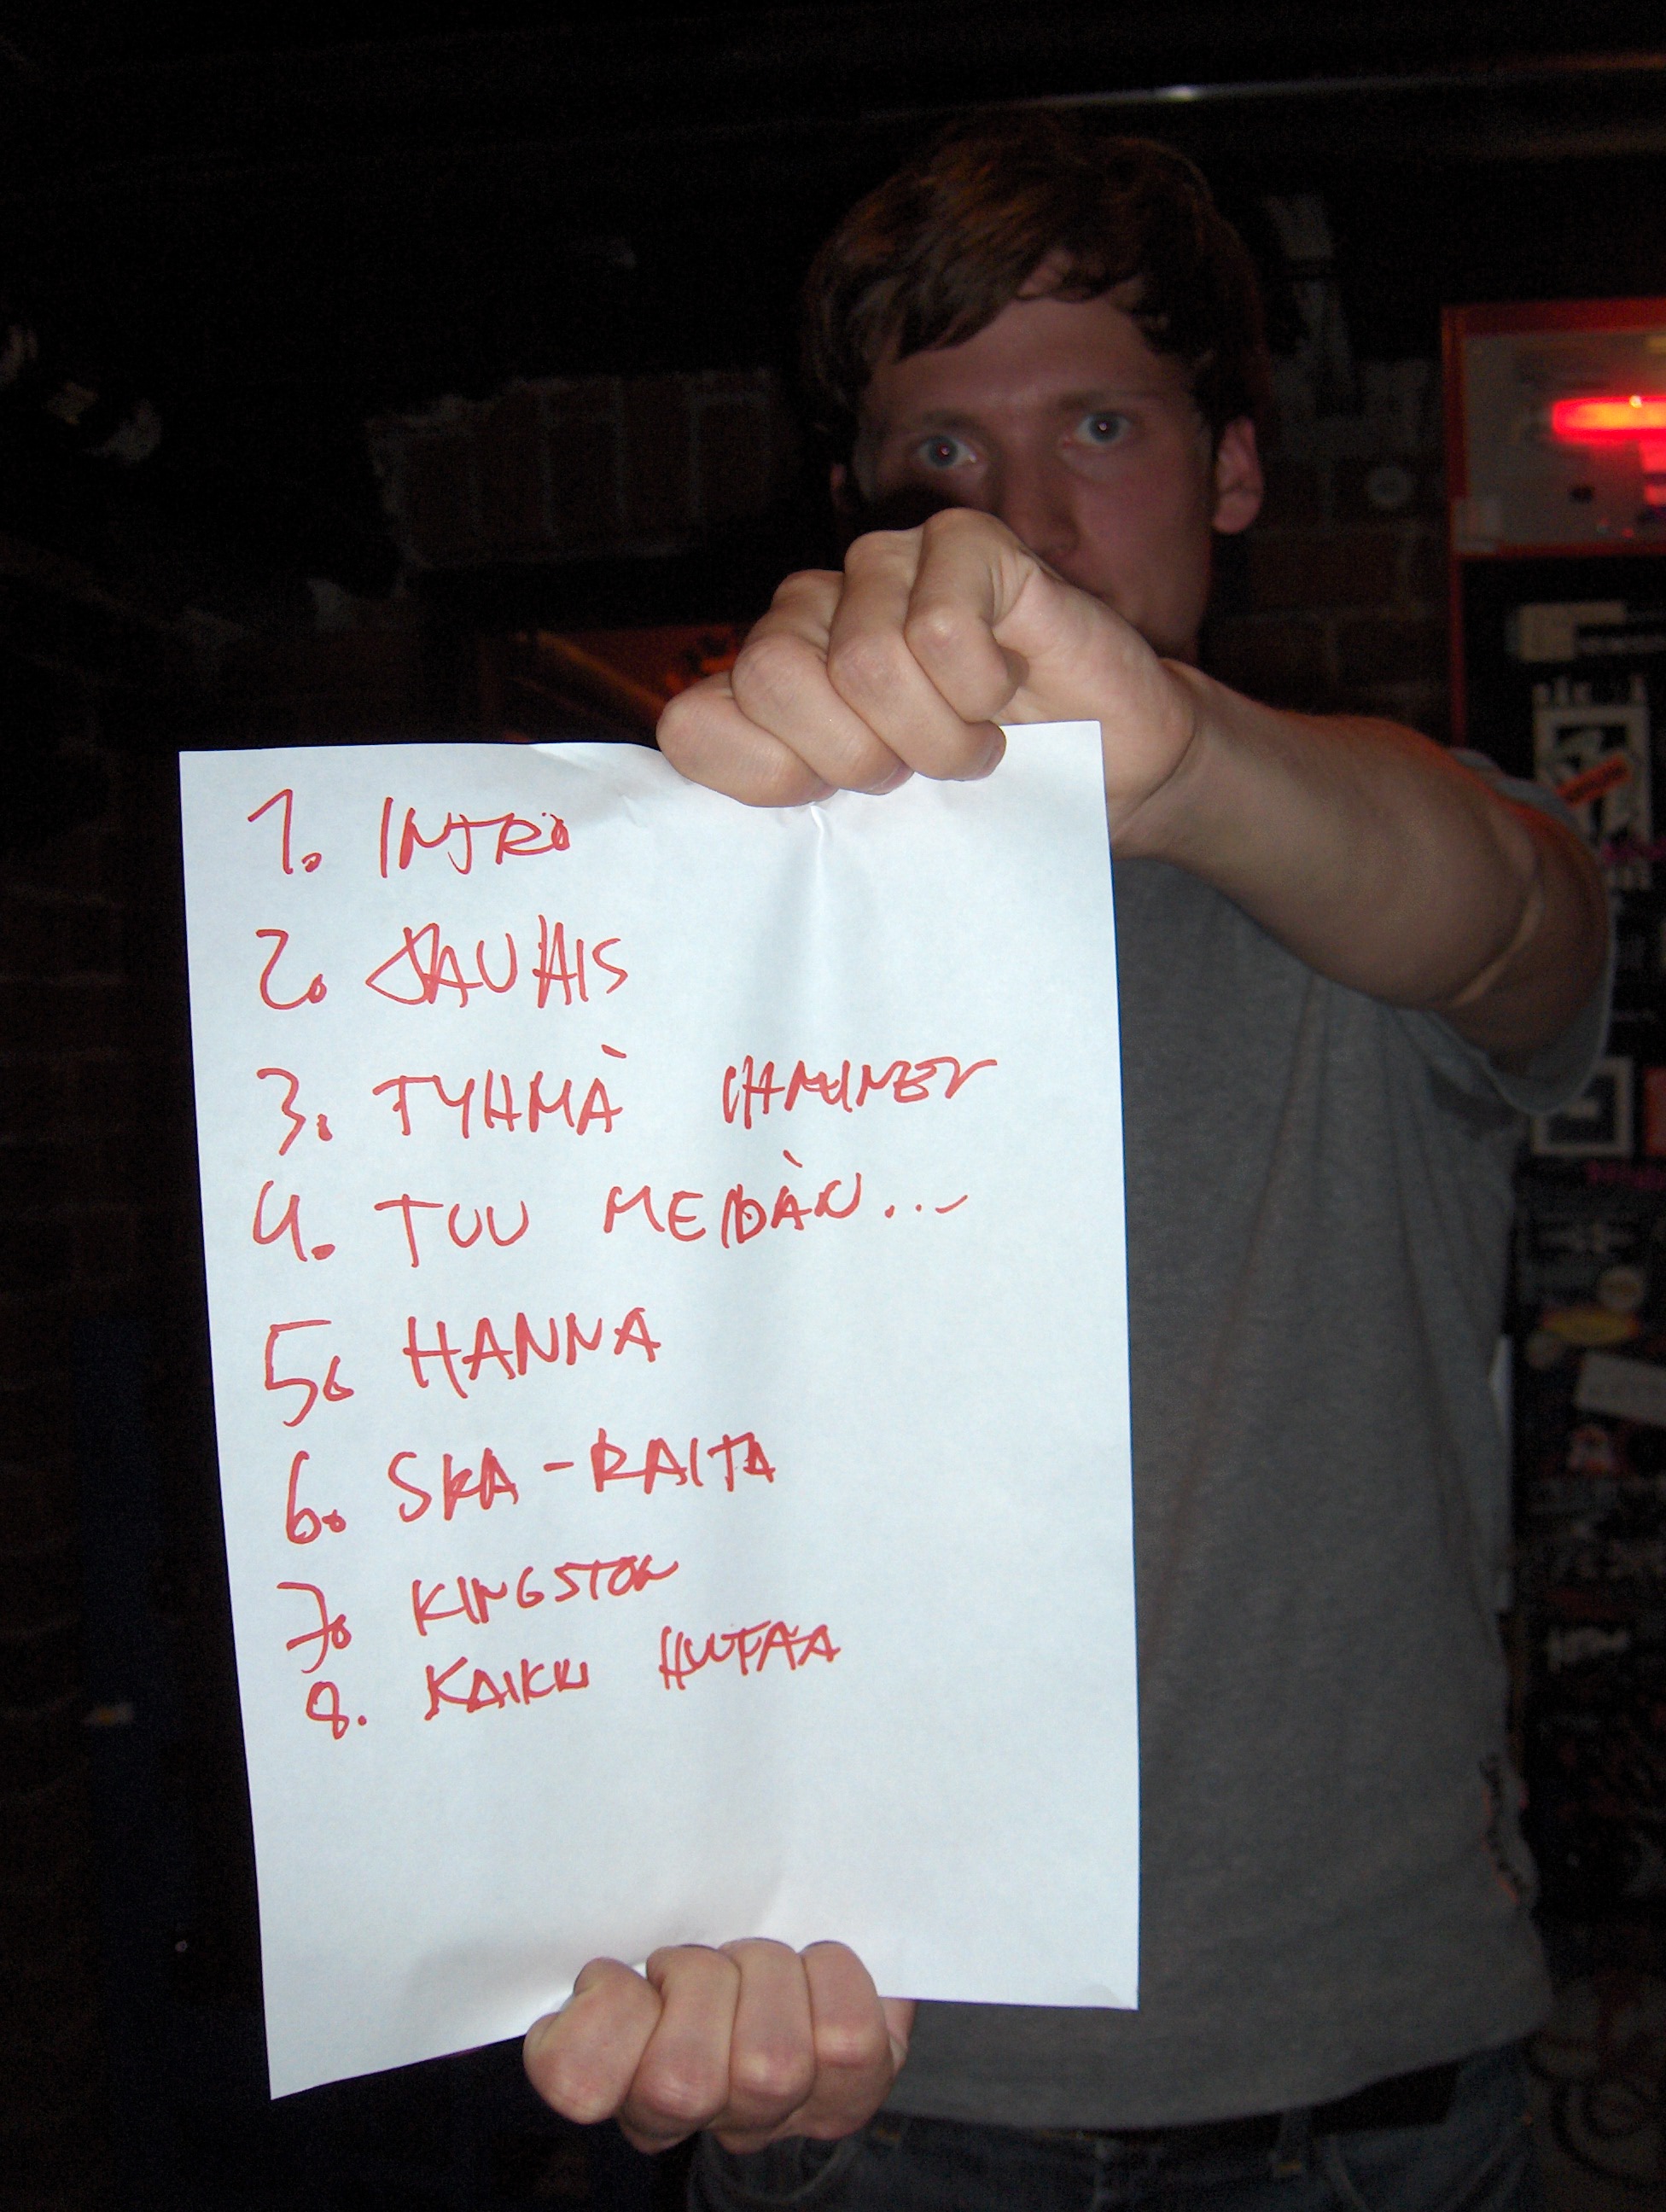 1. INTRO
2. JAUHAIS
3. TYHMÄ IHMINEN
4. TUU MEIDÄN...
5. HANNA
6. SKA-RAITA
7. KINGSTON
8. KAIKKI HUUTAA